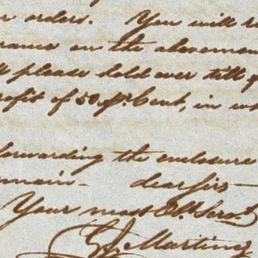 orders. You will
on the abovemen
please hold over till
ofit of 50 pr Cent, in
forwarding the enclosure
emain - dear Sir -
Your most Obt. Servt.
Martin